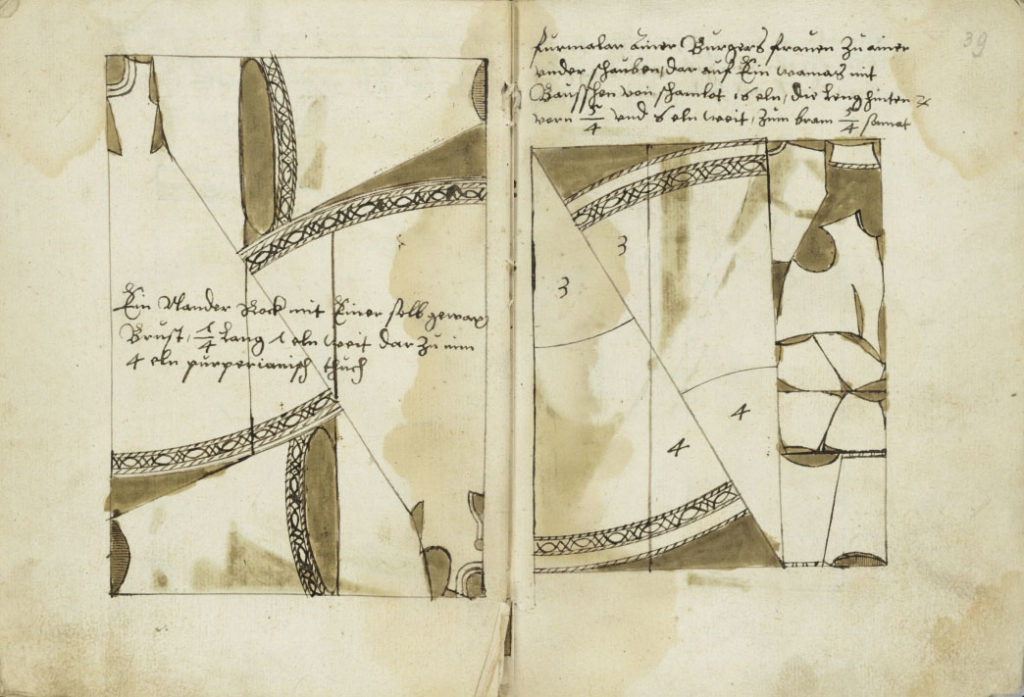 Ein Mander Rock mit Einer selb gewax
Brust, 5/4 Lang 1 eln weit dar Zu nim
4 eln purperianisch thuch
furmalar Einer Burgers frauen Zu ainer
under schauben, dar auf Ein wamas mit
Bauschen von schamlot 16 eln, die Leng hinten &
vorn 5/4 und 6 eln weit, Zum bram 5/4 samat
39
3
3
4
4